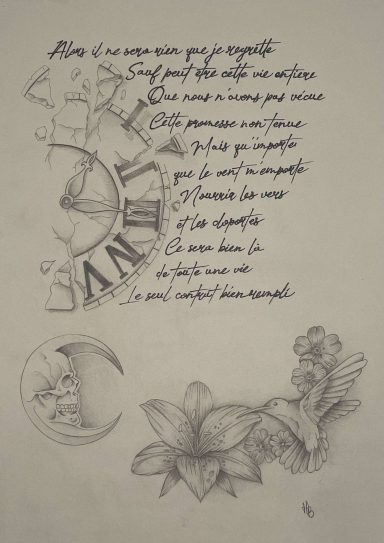 Alors il ne sera rien que je regrette
Sauf peut être cette vie entière
Que nous n'avons pas vécue
Cette promesse non tenue
Mais qu'importe
que le vent m'emporte
Nourrir les vers
et les cloportes
Ce sera bien là
de toute une vie
Le seul contrat bien rempli
III